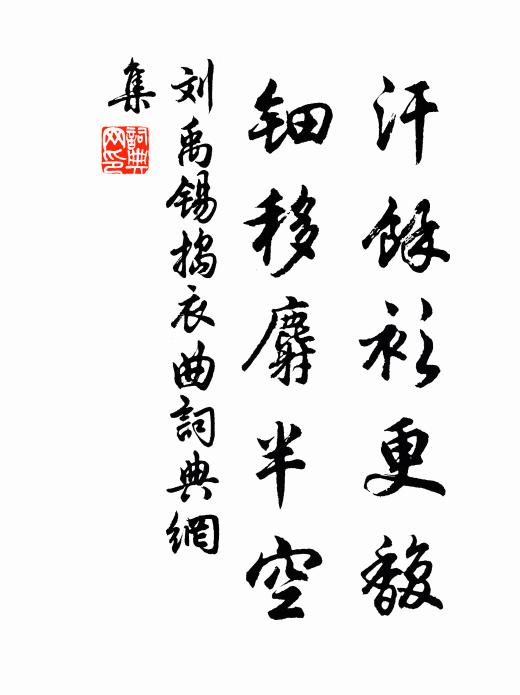 汗餘衫更馥
鈿移麝半空
刘禹锡捣衣曲詞典網
集
詞典网印